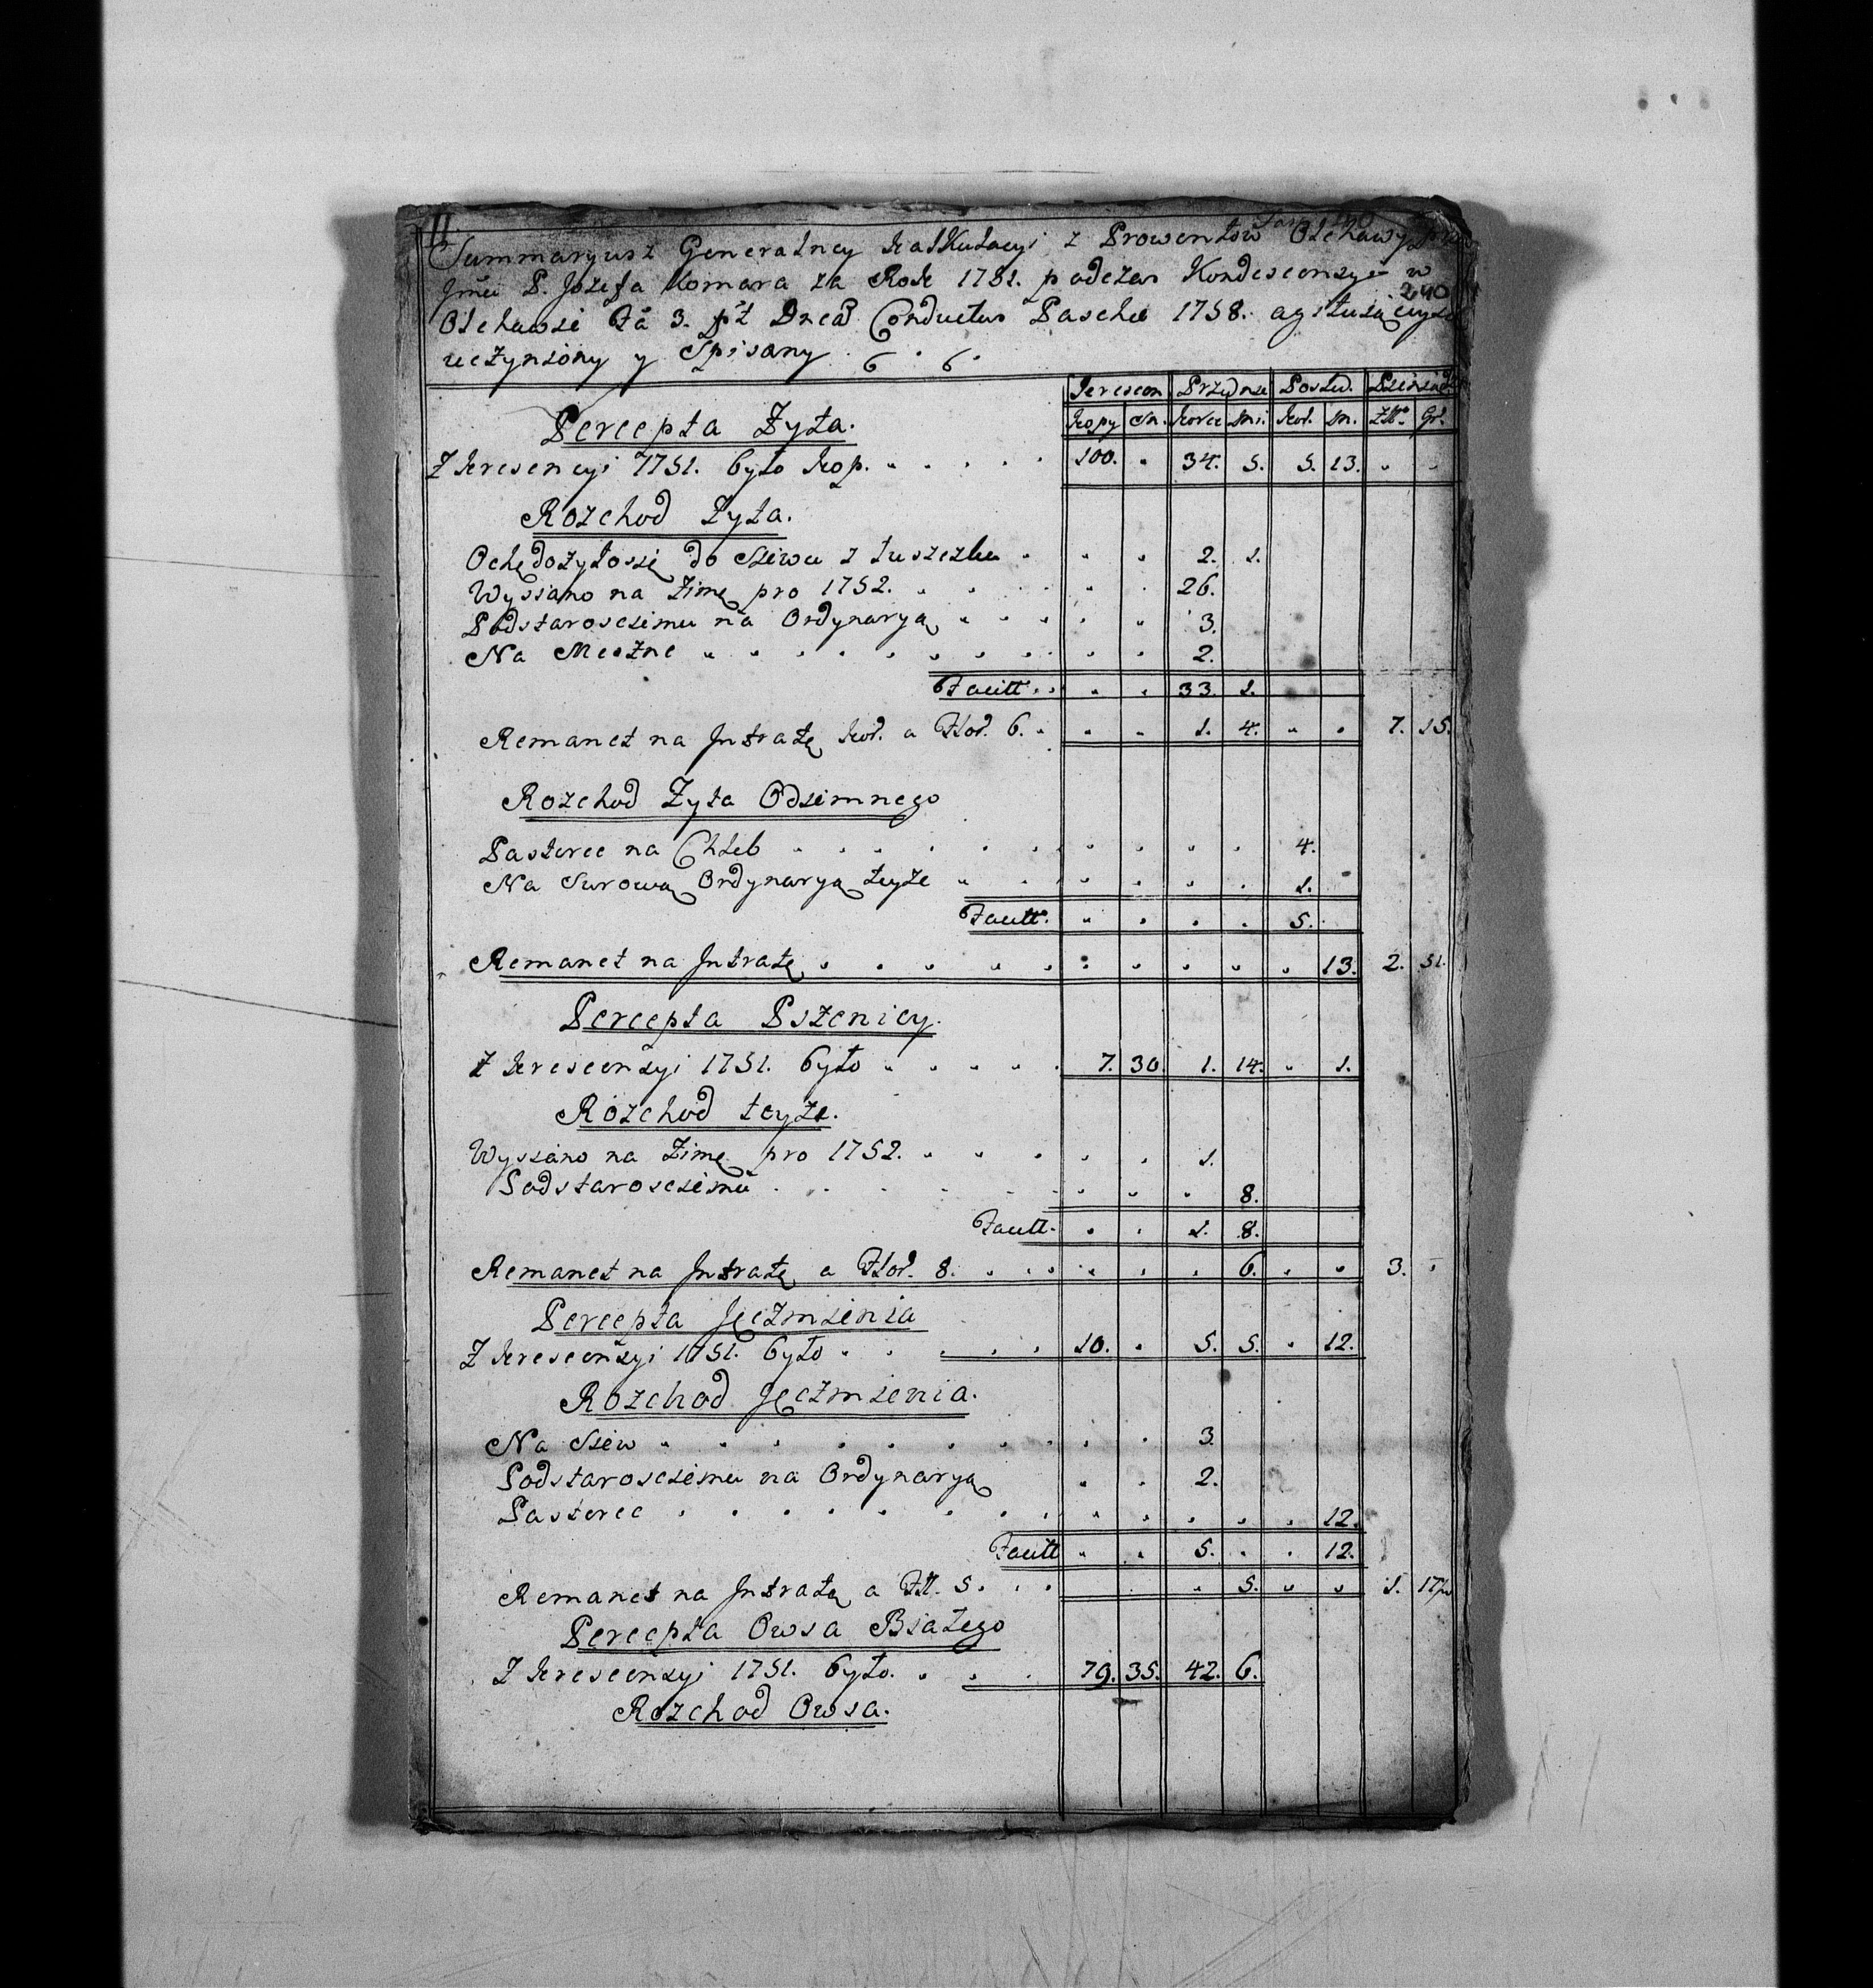 Summaryusz Generalney Kalkulacyi z Prowentow Olchawy
Jmci P. Jozefa Komara za Rok 1751. podczas Kondescensyi w
240
Olchawsi za 3. Conductus Pascha 1758.
uczyniony y Spisany
Krescen Przednie Posled. Pieniądze
Kopy Sn. Korce Ósmi. Kor. Ósm. Złł. Gr.
Percepta Zyta.
Z Krescencyi 1751. było Kop. 100. 34. 5. 5. 13.
Rozchod Zyta.
Ochędożyłosię do Siewu z 2. 1.
Wysiano na Zimę pro 1752. 26.
Podstarosciemu na Ordynaryą 3.
Na Meszne 2.
Facitt 33. 1.
Remanet na Intratę kor. a Złot. 6. 1. 4. 7. 15.
Rozchod Zyta Odsimnego
Pasterce na Chleb 4.
Na Surową Ordynaryą teyże 1.
Facitt. 5.
Remanet na Intratę 13. 2. 51.
Percepta Pszenicy.
Z Krescensyi 1751. było 7. 30. 1. 14. 1.
Rozchod teyże.
Wysiano na Zimę pro 1752. 1.
Podstarosciemu 8.
Facitt. 1. 8.
Remanet na Intratę a Złot. 8. 6. 3.
Percepta Jęczmienia
Z Krescensyi 1751. było 10. 5. 5. 12.
Rozchod Jęczmienia.
Na Siew 3.
Podstarosciemu na Ordynaryą 2.
Pasterce 12.
Facitt 5. 12.
Remanet na Intratę a Zł. 5. 5. 1.
Percepta Owsa Białego
Z Krescensyi 1751. było. 79. 35. 42. 6.
Rozchod Owsa.